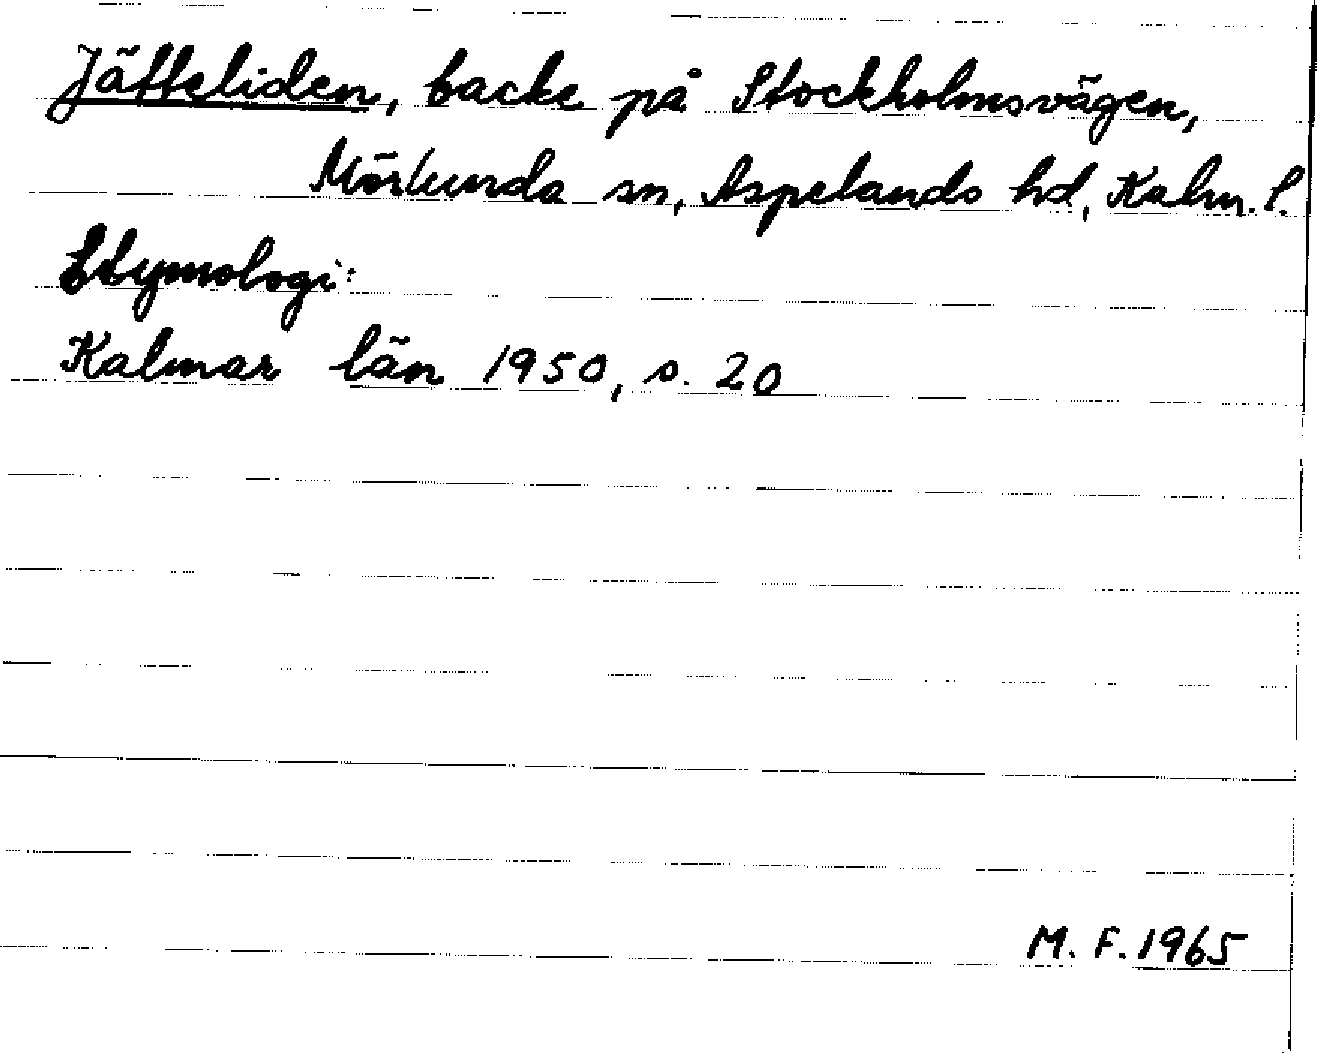 Jätteliden, backe på Stockholmsvägen,
Mörlunda sn, Aspelands hd, Kalm. l.
Etymologi:
Kalmar län 1950, s. 20
M. F. 1965